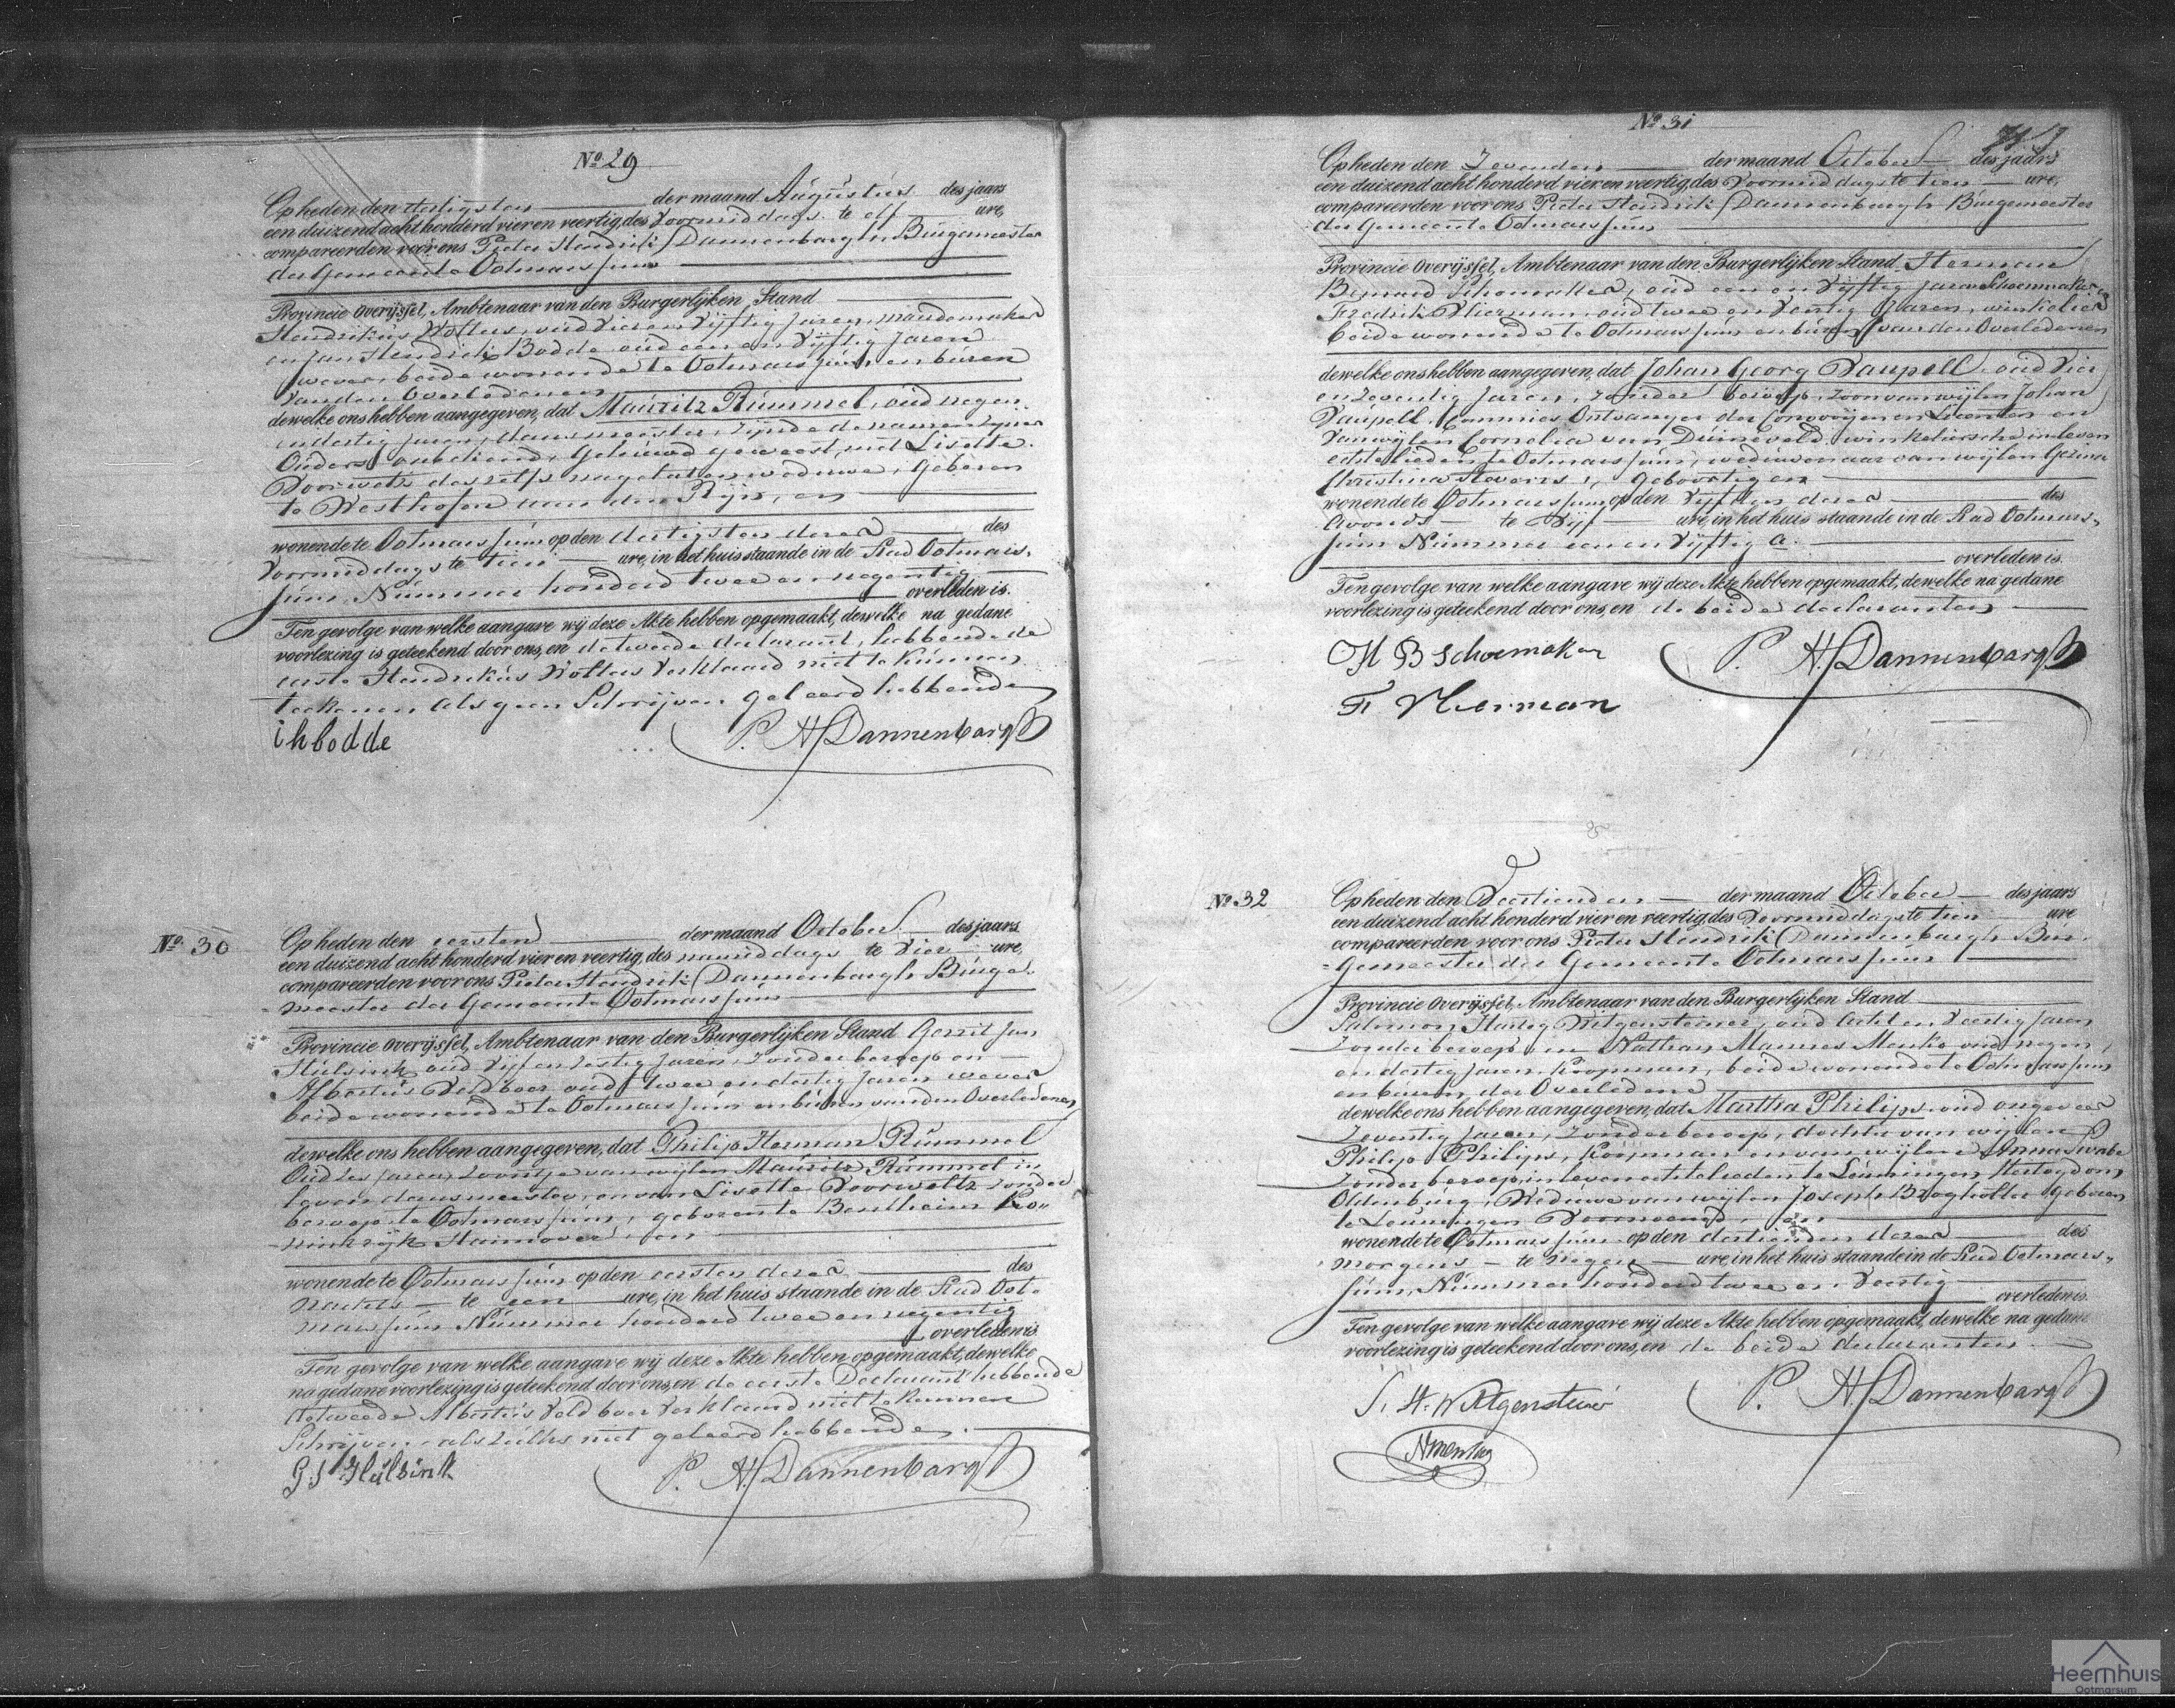 No 29
Op heden den dertigsten der maand Augustus des jaars
een duizend acht honderd vier en veertig, des Voormiddags te elf ure,
compareerden voor ons Pieter Hendrik Dannenbargh Burgemeester
der Gemeente Ootmarssum
Provincie Overijssel, Ambtenaar van den Burgerlijken Stand
Hendrikus Wolters, oud vier en vijftig Jaren, mandemaker
en Jan Hendrik Bodde oud een en vijftig Jaren
wever, beide wonende te Ootmarssum en buren
van den Overledenen
dewelke ons hebben aangegeven, dat Mauritz Rümmel, oud negen
en dertig Jaren, dansmeester, zijnde de namen zijner
Ouders onbekend, Gehuwd geweest met Lisette
Voorweltz deszelfs nagelaten weduwe, Geboren
te Westhofen aan den Rijn, en
wonende te Ootmarssum op den dertigsten dezer des
Voormiddags te tien ure, in het huis staande in de Stad Ootmars-
sum Nummer honderd twee en negentig
overleden is.
Ten gevolge van welke aangave wij deze Akte hebben opgemaakt, dewelke na gedane
voorlezing is geteekend door ons, en de tweede declarant, hebbende de
eerste Hendrikus Wolters verklaard niet te kunnen
teekenen als geen Schrijven geleerd hebbende
i h bodde P. H. Dannenbargh
No 30
Op heden den eersten der maand October des jaars
een duizend acht honderd vier en veertig, des namiddags te Vier ure,
compareerden voor ons Pieter Hendrik Dannenbargh Burge-
meester der Gemeente Ootmarssum
Provincie Overijssel, Ambtenaar van den Burgerlijken Stand Gerrit Jan
Hulsink oud vijf en zestig Jaren zonder beroep en
Albertus Veldboer oud twee en dertig Jaren wever
beide wonende te Ootmarssum en buren van den Overledenen
dewelke ons hebben aangegeven, dat Philip Herman Rümmel
Oud zes Jaren, Zoontje van wijlen Mauritz Rümmel in
leven dansmeester, en van Lisette Voorweltz zonder
beroep te Ootmarssum, geboren te Bentheim Ko-
ninkrijk Hannover, en
wonende te Ootmarssum op den eersten dezer des
nachts te een ure, in het huis staande in de Stad Oot-
marssum Nummer honderd twee en negentig
overleden is.
Ten gevolge van welke aangave wij deze Akte hebben opgemaakt, dewelke
na gedane voorlezing is geteekend door ons, en de eerste Declarant hebbende
de tweede Albertus Veldboer Verklaard niet te kunnen
Schrijven, als zulks niet geleerd hebbende.
G J Hulsink P. H. Dannenbargh
No 31
Op heden den Zevenden der maand October des jaars
een duizend acht honderd vier en veertig, des Voormiddags te tien ure,
compareerden voor ons Pieter Hendrik Dannenbargh Burgemeester
der Gemeente Ootmarssum
Provincie Overijssel, Ambtenaar van den Burgerlijken Stand Herman
Bernard Schoemaker, oud een en vijftig Jaren Schoenmaker
Fredrik Vlierman, oud twee en veertig Jaren, winkelier
beide wonende te Ootmarssum en buren van den Overledenen
dewelke ons hebben aangegeven, dat Johan Georg Vaupell oud Vier
en zeventig Jaren, zonder beroep, zoon van wijlen Johan
Vaupell, Commies Ontvanger der Convooijen en Licenten en
van wijlen Cornelia van Duineveld winkeliersche in leven
echtelieden te Ootmarssum, weduwenaar van wijlen Gezina
Christina Stevens, geboortig en
wonende te Ootmarssum op den vijfden dezer des
Avonds te Vijf ure, in het huis staande in de Stad Ootmars-
sum Nummer een en Vijftig a.
overleden is.
Ten gevolge van welke aangave wij deze Akte hebben opgemaakt, dewelke na gedane
voorlezing is geteekend door ons, en de beide declaranten
H B Schoemaker P. H. Dannenbargh
F Vlierman
No 32
Op heden den Veertienden der maand October des jaars
een duizend acht honderd vier en veertig, des Voormiddags te tien ure
compareerden voor ons Pieter Hendrik Dannenbargh Bur-
gemeester der Gemeente Ootmarssum
Provincie Overijssel, Ambtenaar van den Burgerlijken Stand
Salomon Hartog Witgensteiner, oud Acht en Veertig Jaren
zonder beroep, en Nathan Mannes Menko oud negen
en dertig Jaren, Koopman, beide wonende te Ootmarssum
en buren der Overledene
dewelke ons hebben aangegeven, dat Martha Philips, oud ongeveer
Zeventig Jaren, zonder beroep, dochter van wijlen
Philip Philips, Koopman en van wijlen Anna Swabe
zonder beroep, in leven echtelieden te Leuningen Hertogdom
Oldenburg, Weduwe van wijlen Joseph geboren
te Leuningen Voornoemd, en
wonende te Ootmarssum op den dertienden dezer des
morgens te negen ure, in het huis staande in de Stad Ootmars-
sum, Nummer honderd twee en Veertig
overleden is.
Ten gevolge van welke aangave wij deze Akte hebben opgemaakt, dewelke na gedane
voorlezing is geteekend door ons, en de beide declaranten.
S. H. Witgensteiner P. H. Dannenbargh
NMMenko
Heemhuis
Ootmarsum